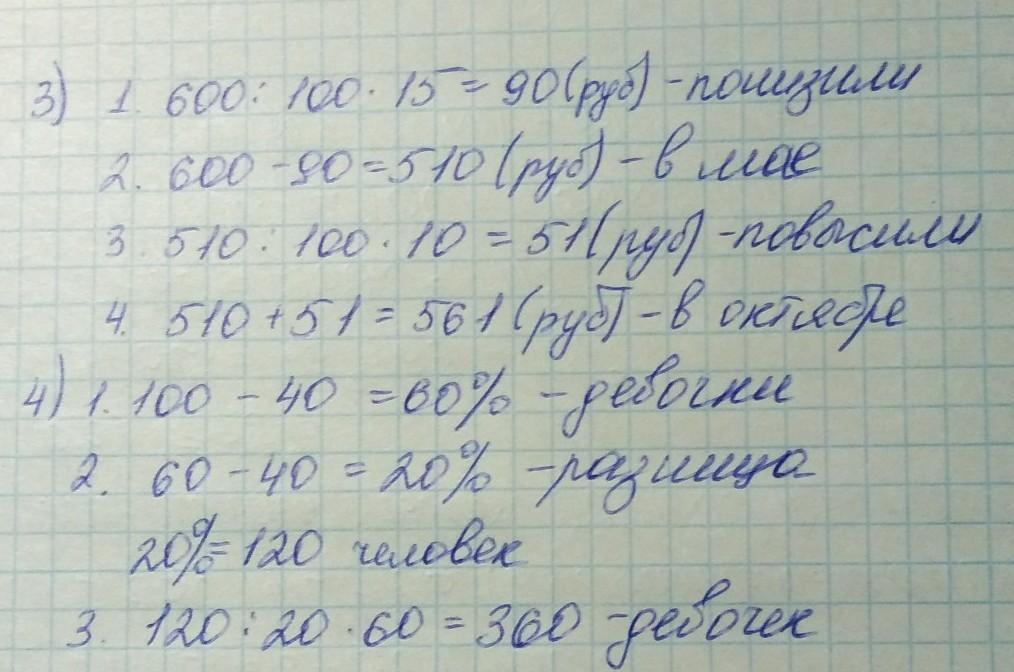 3) 1. 600 : 100 · 15 = 90 (руб) - понизили
2. 600 - 90 = 510 (руб) - в мае
3. 510 : 100 · 10 = 51 (руб) - повысили
4. 510 + 51 = 561 (руб) - в октябре
4) 1. 100 - 40 = 60% - девочки
2. 60 - 40 = 20% - разница
20% = 120 человек
3. 120 : 20 · 60 = 360 - девочек